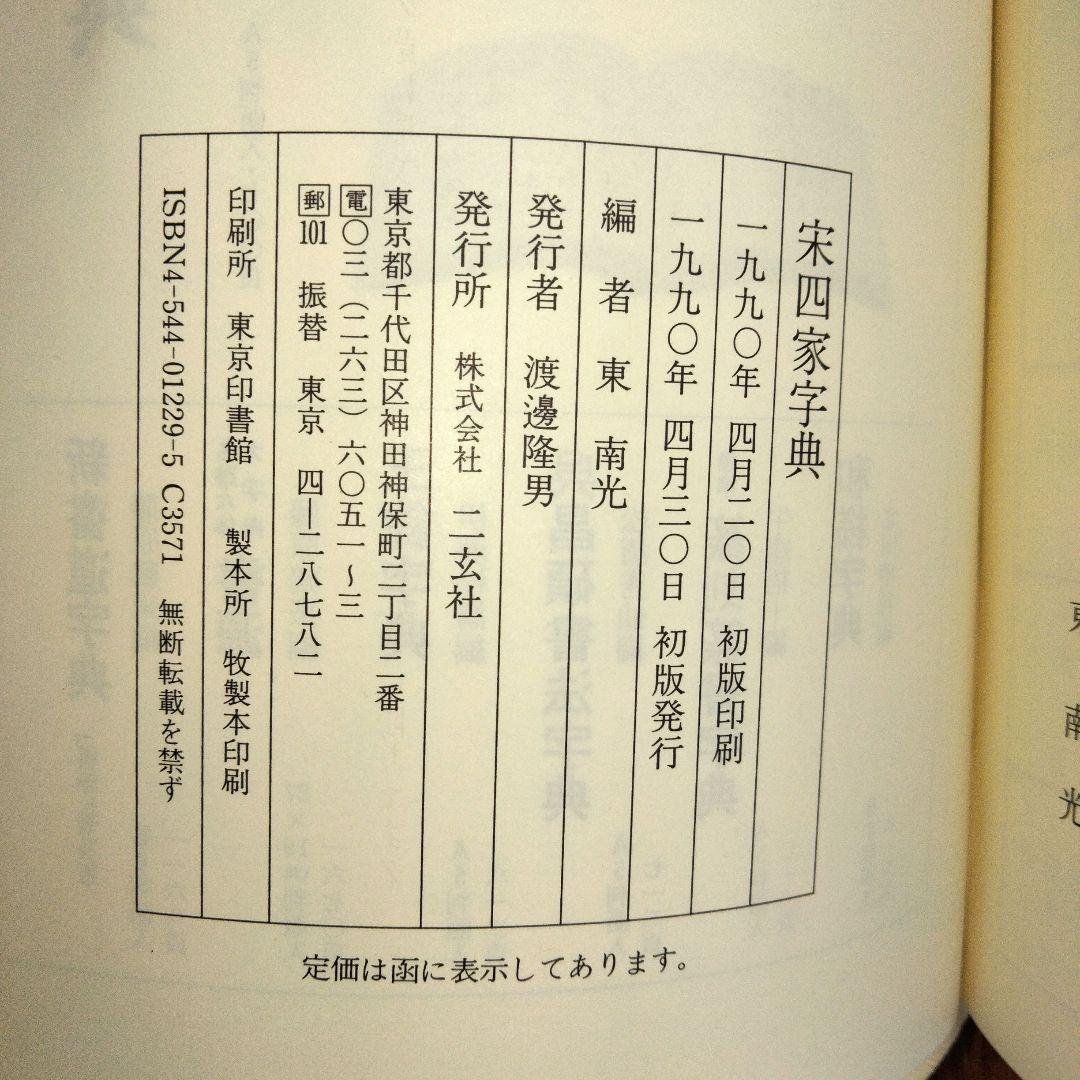 宋四家字典
一九九〇年 四月二〇日 初版印刷
一九九〇年 四月三〇日 初版発行
編者 東南光
発行者 渡邊隆男
発行所 株式会社 二玄社
東京都千代田区神田神保町二丁目二番
電〇三(二六三)六〇五一〜三
郵101 振替 東京 四―二八七八二
印刷所 東京印書館 製本所 牧製本印刷
ISBN4-544-01229-5 C3571 無断転載を禁ず
定価は函に表示してあります。
東南光